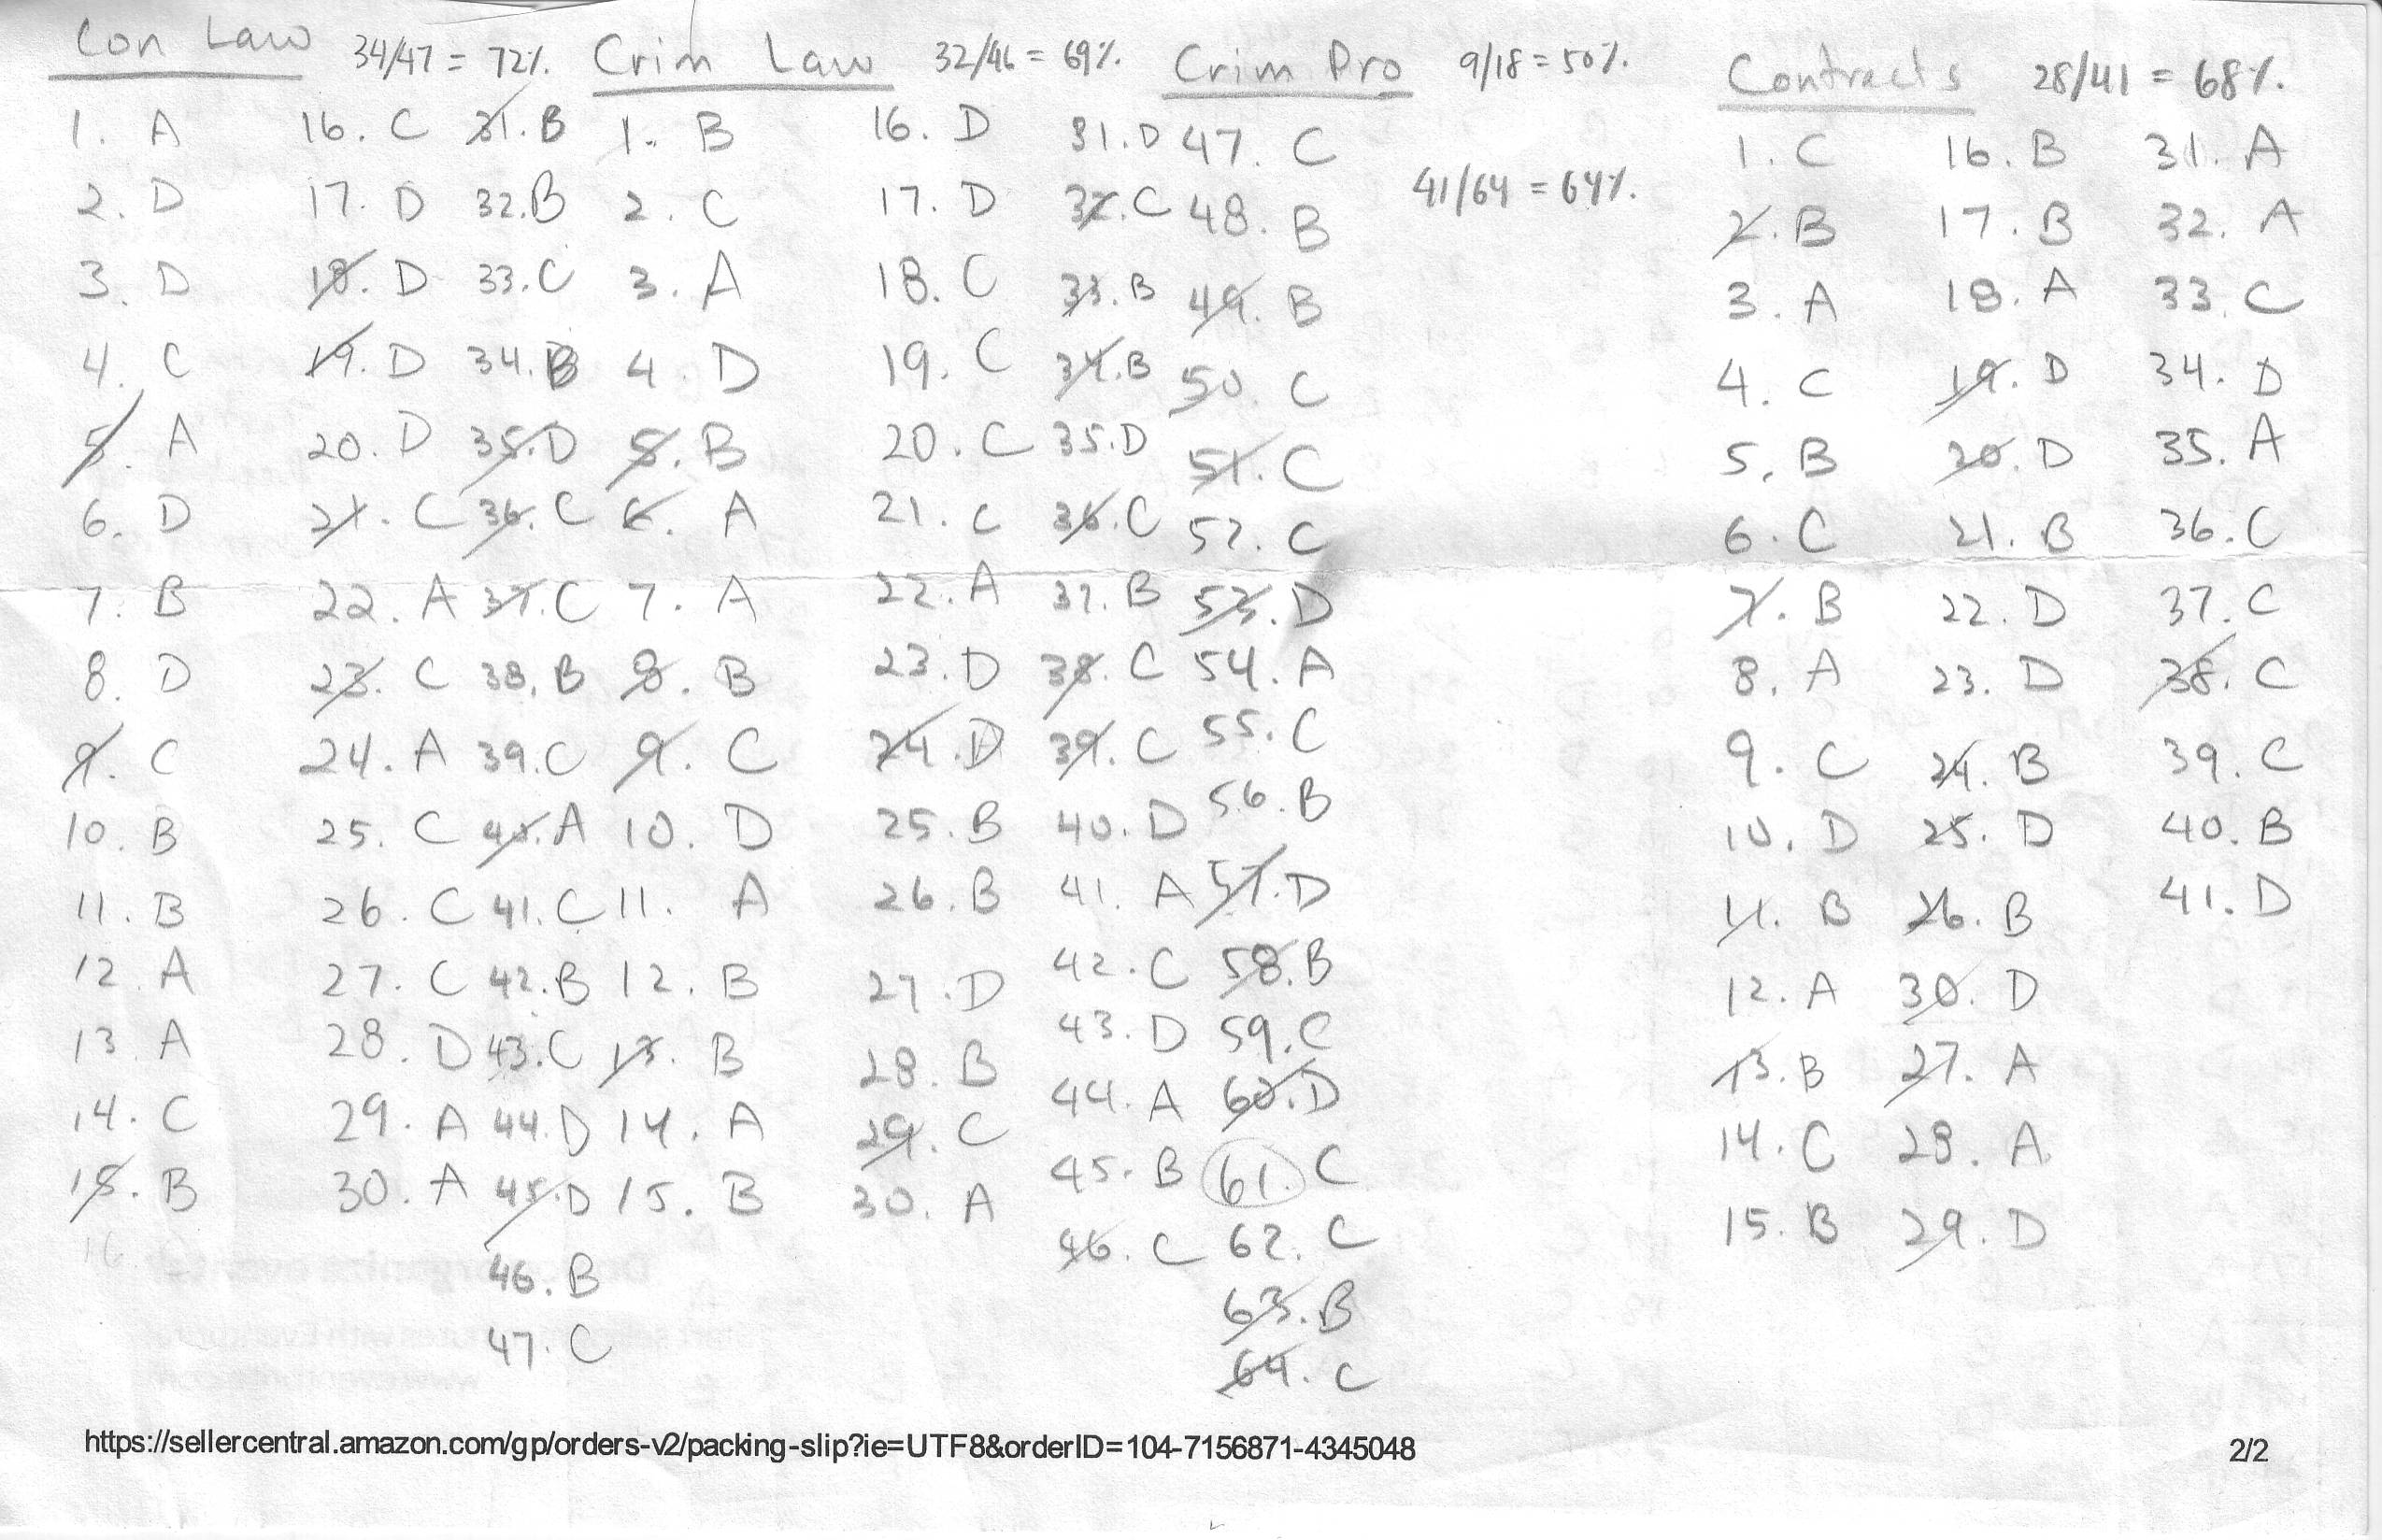 Con Law 34/47 = 72% Crim Law 32/46 = 69% Crim Pro 9/18 = 50% Contracts 28/41 = 68%
1. A 16. C 31. B 1. B 16. D 31. D 47. C 1. C 16. B 31. A
41/64 = 64%
2. D 17. D 32. B 2. C 17. D 32. C 48. B 2. B 17. B 32. A
3. D 18. D 33. C 3. A 18. C 33. B 49. B 3. A 18. A 33. C
4. C 19. D 34. B 4. D 19. C 34. B 50. C 4. C 19. D 34. D
5. A 20. D 35. D 5. B 20. C 35. D 51. C 5. B 20. D 35. A
6. D 21. C 36. C 6. A 21. C 36. C 52. C 6. C 21. B 36. C
7. B 22. A 37. C 7. A 22. A 37. B 53. D 7. B 22. D 37. C
8. D 23. C 38. B 8. B 23. D 38. C 54. A 8. A 23. D 38. C
9. C 24. A 39. C 9. C 24. D 39. C 55. C 9. C 24. B 39. C
10. B 25. C 40. A 10. D 25. B 40. D 56. B 10. D 25. D 40. B
11. B 26. C 41. C 11. A 26. B 41. A 57. D 11. B 26. B 41. D
12. A 27. C 42. B 12. B 27. D 42. C 58. B 12. A 30. D
13. A 28. D 43. C 13. B 28. B 43. D 59. C 13. B 27. A
14. C 29. A 44. D 14. A 29. C 44. A 60. D 14. C 28. A
15. B 30. A 45. D 15. B 30. A 45. B 61. C 15. B 29. D
16. 46. B 46. C 62. C
47. C 63. B
64. C
https://sellercentral.amazon.com/gp/orders-v2/packing-slip?ie=UTF8&orderID=104-7156871-4345048 2/2